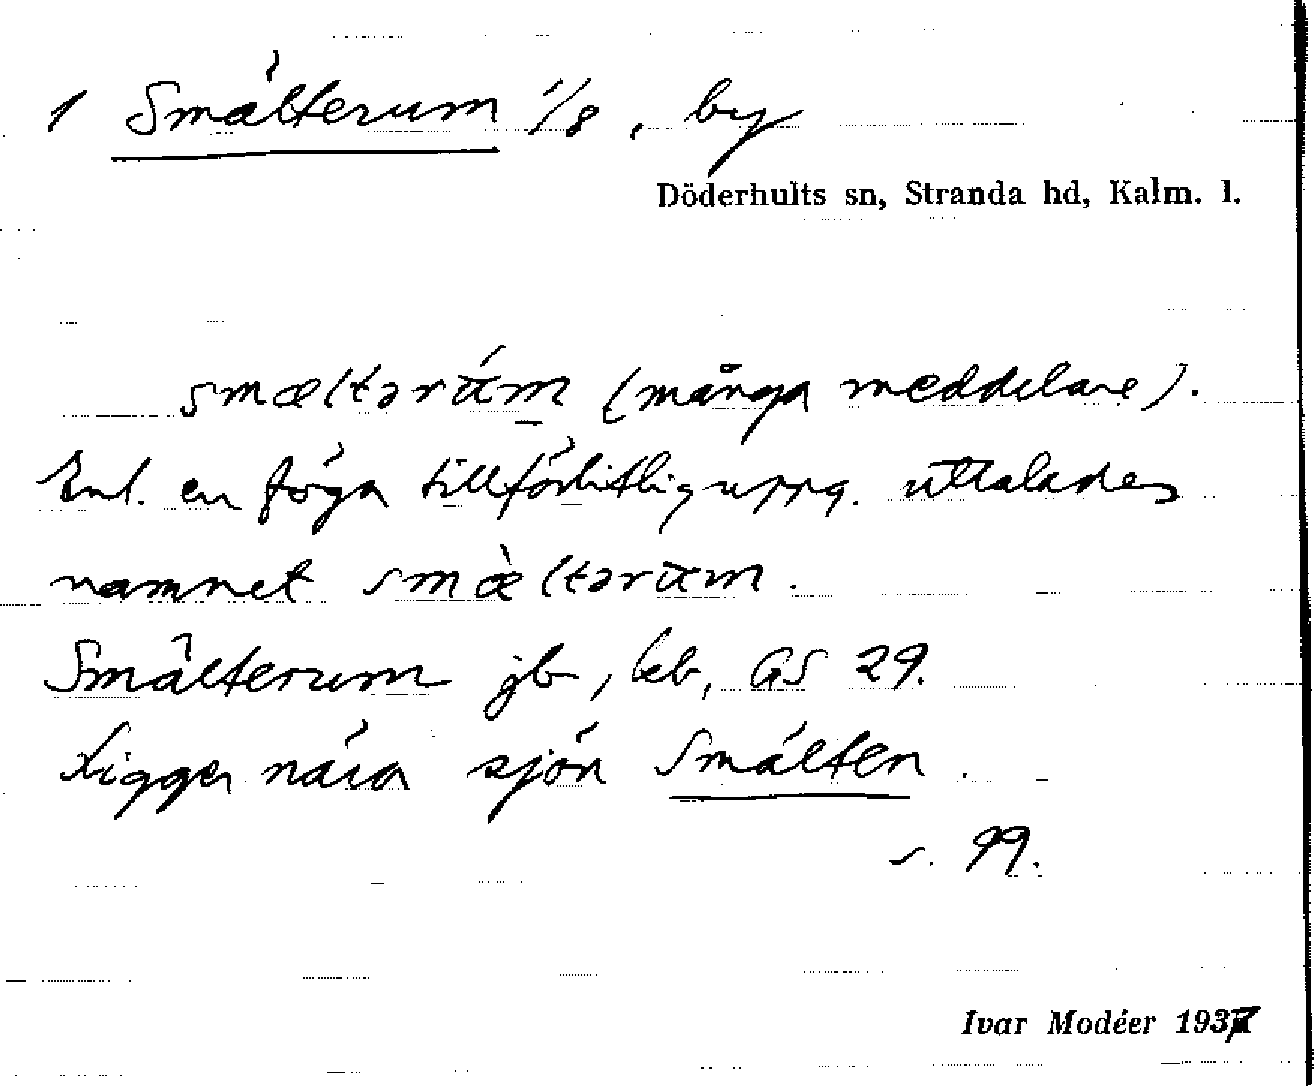 1 Smälterum 1/8, by
Döderhults sn, Stranda hd, Kalm. l.
smæltərúm (många meddelare).
Enl. en föga tillförlitlig uppg. uttalades
namnet smæ̀ltərum.
Smälterum jb, kb, GS 29.
Ligger nära sjön Smälten.
s. 99.
Ivar Modéer 1937